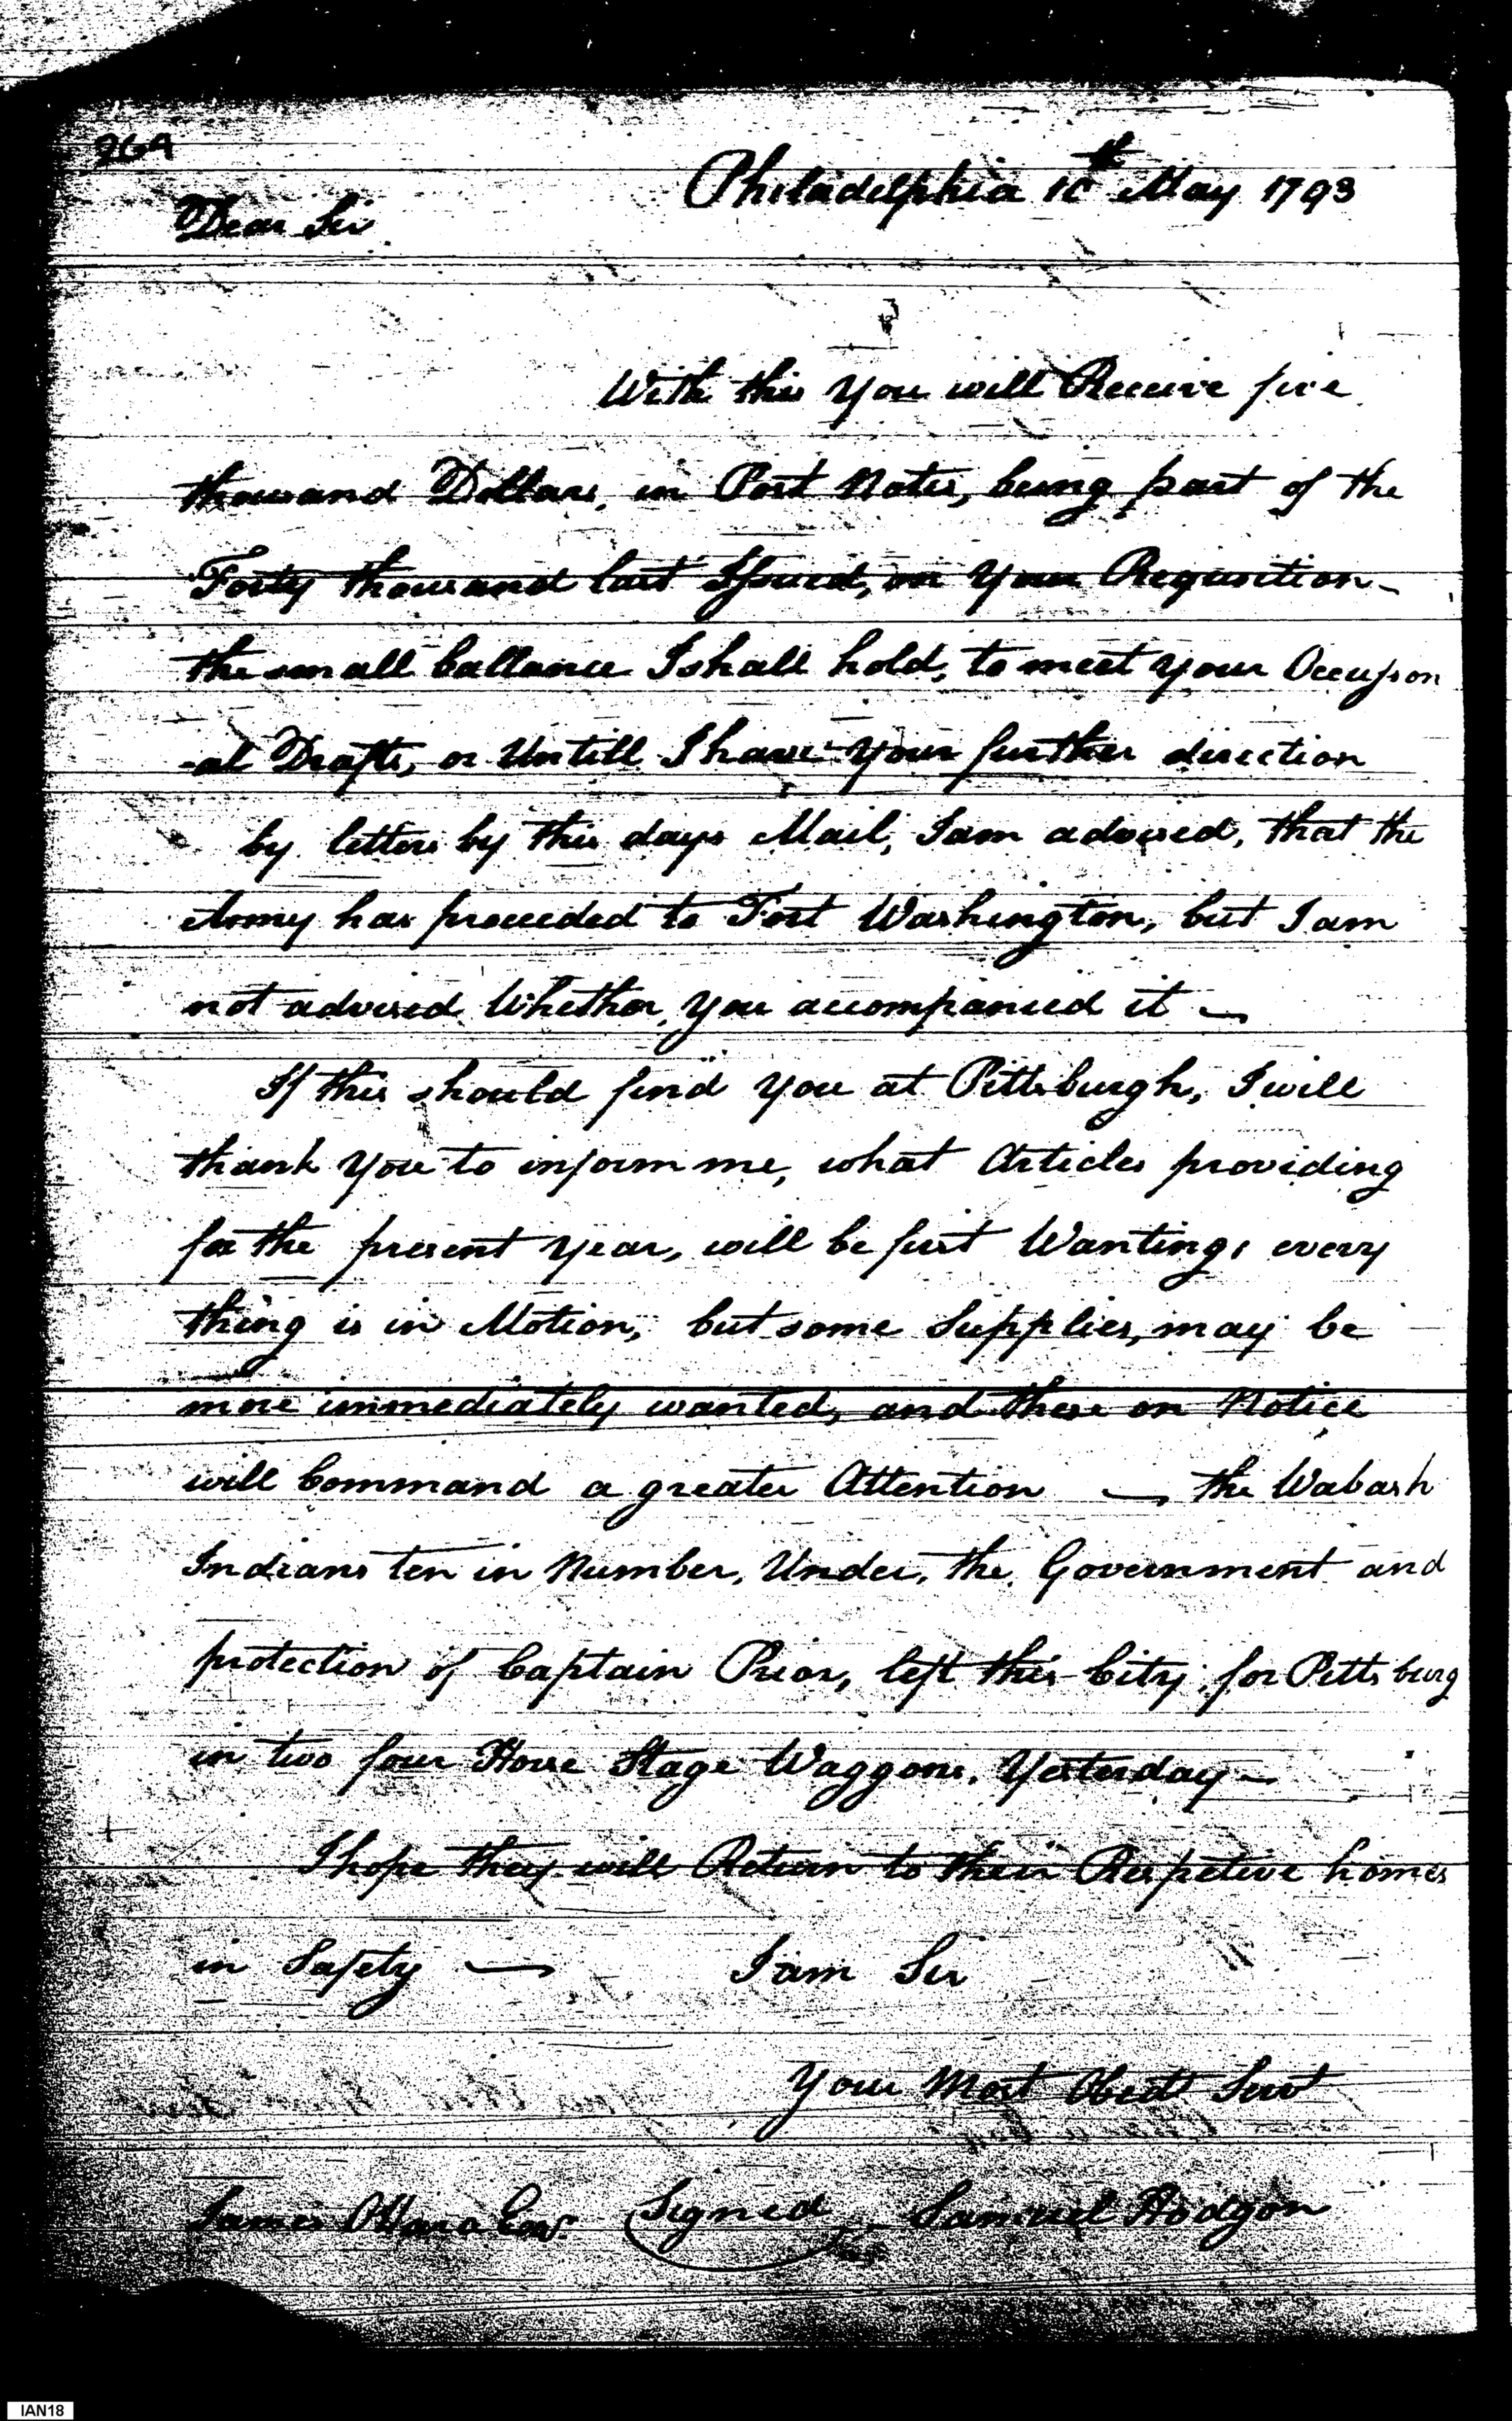 264
Philadelphia 10th May 1793
Dear Sir
With this you will Receive five
thousand Dollars, in Post Notes, being part of the
Forty thousand last Issued, on your Requisition -
the small ballance I shall hold, to meet your Occasion
-al Drafts, or Untill I have your further direction
by letters by this days Mail, I am advised, that the
Army has proceeded to Fort Washington, but I am
not advised Whether you accompanied it -
If this should find you at Pittsburgh, I will
thank you to inform me, what Articles providing
for the present year, will be first Wanting, every
thing is in Motion, but some Supplies, may be
more immediately wanted, and these on Notice
will Command a greater Attention - the Wabash
Indians ten in Number, Under, the Government and
protection of Captain Prior, left this City, for Pittsburg
in two four Horse Stage Waggons, Yesterday -
I hope they will Return to their Respetive homes
in Safety - I am Sir
Your Most Obedt Servt
James OHara Esqr. Signed Samuel Hodgon
IAN18